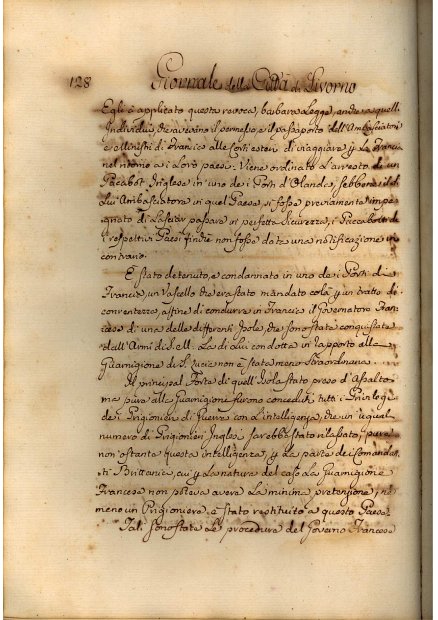 128 Giornale della Città di Livorno
Egli à applicato questa revoca, barbara Legge, anche a quelli
Individui, che avevino il permesso, e il passaporto dell'Ambasciatori
e Ministri di Francia alle Corti estere di viaggiare p la Francia
nel ritorno a i loro paesi. Viene ordinato l'arresto de un
Pacabot Inglese in uno de i Porti d'Olanda, sebbene il di
Lui Ambasciatore in quel Paese, si fosse previamente impe-
gnato di Lasciar passare in perfetta Sicurezza, i Paccabot de
i respettivi Paesi finche non fosse data una notificazione in
contrario.
E' stato detenuto, e condannato in uno de i Porti di
Francia, un Vascello che era stato mandato colà p un tratto di
convenienza, affine di condurre in Francia il Governatore Fran-
cese di una delle differenti Isole, che sono state conquistate
dall'Armi di S. M. La di lui condotta in rapporto alla
Guarnigione di S. Lucie non è stata meno straordinaria.
Il principal Forte di quell'Isola stato preso d'Assalto
ma pure alle Guarnigioni furono conceduti tutti i Privilegi
de i Prigionieri di Guerra con L'intelligenza, che un'equal
numero di Prigionieri Inglesi sarebbe stato rilassato, pure
non ostante questa intelligenza, p La parte de i Comandan-
ti Brittanici, cui p La natura del caso La Guarnigione
Francese non poteva avere La minima pretenzione, nè
meno un Prigioniere è stato restituito a questo Paese.
Tali sono state Le procedure del Governo Francese